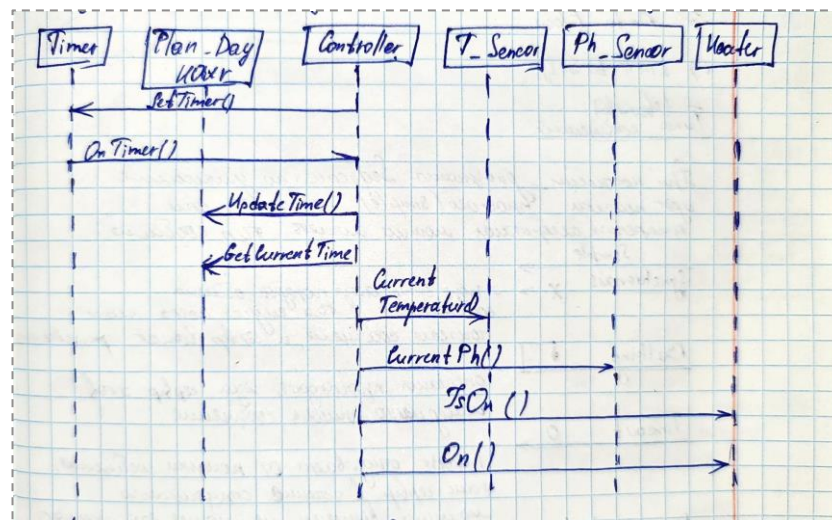 Timer
Plan_Day
Controller
T_Sencor
Ph_Sencor
Heater
SetTimer()
OnTimer()
UpdateTime()
GetCurrentTime
Current
Temperature()
CurrentPh()
IsOn()
On()